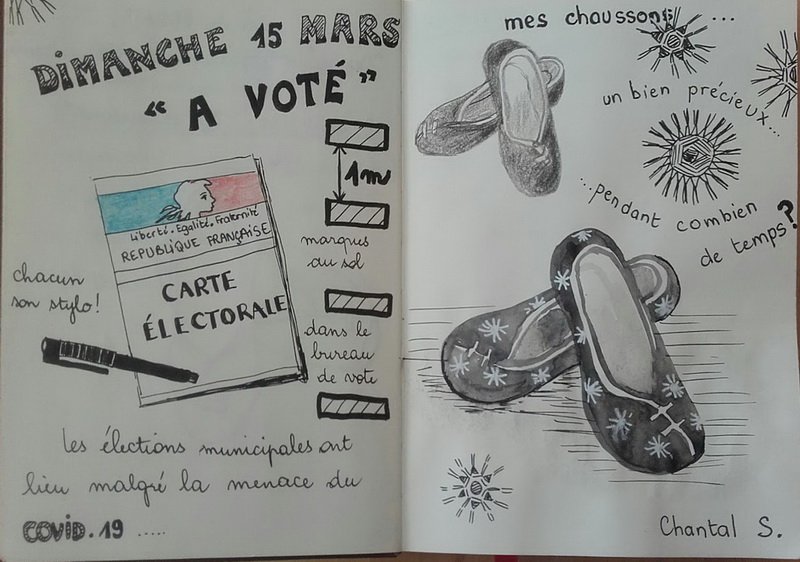 DIMANCHE 15 MARS
“ A VOTÉ ”
1m
Liberté. Egalité. Fraternité
REPUBLIQUE FRANÇAISE
CARTE
ÉLECTORALE
chacun
son stylo!
marques
au sol
dans le
bureau
de vote
Les élections municipales ont
lieu malgré la menace du
COVID.19 .....
mes chaussons ...
un bien précieux...
...pendant combien
de temps?
Chantal S.